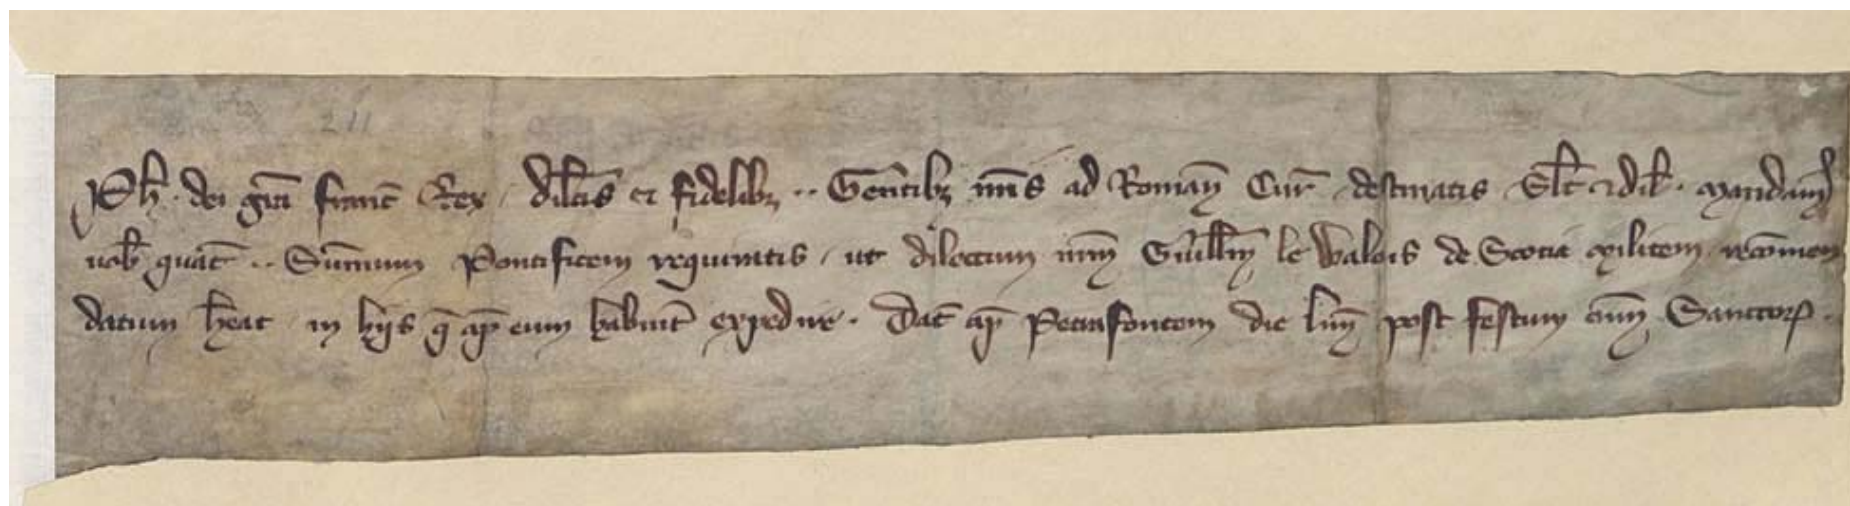 211
Ph̄. dei grā Franc̄ Rex, dilc̄is et fidelib; .. Gentib; nr̄is ad Romanā Cur̄ destinatis Sal̄t et dil̄. Mandam᷒
vob̄ quat̄ .. Summum Pontificem requiratis, ut dilectum nr̄m Guill̄m le Walois de Scotia militem, recōmen
datum h̄eat in hiis q̄ ap̄ eum habuit̄ expedire. Dat̄ ap̄ Petrafontem die lun̄ post festum om̄ Sanctorꝝ.